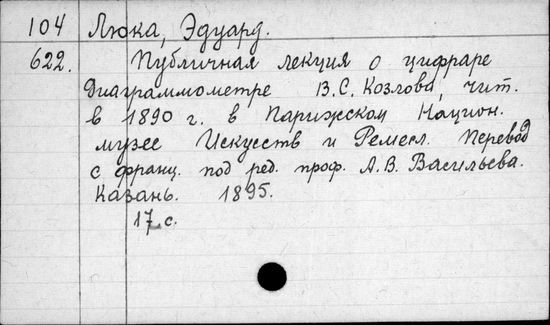 104 Люка, Эдуард.
622. Публичная лекция о цифраре
Диаграммометре В.С. Козлова, чит.
в 1890 г. в Парижском Национ.
музее Искусств и Ремесл. Перевод
с франц. под ред. проф. А.В. Васильева.
Казань. 1895.
17 с.